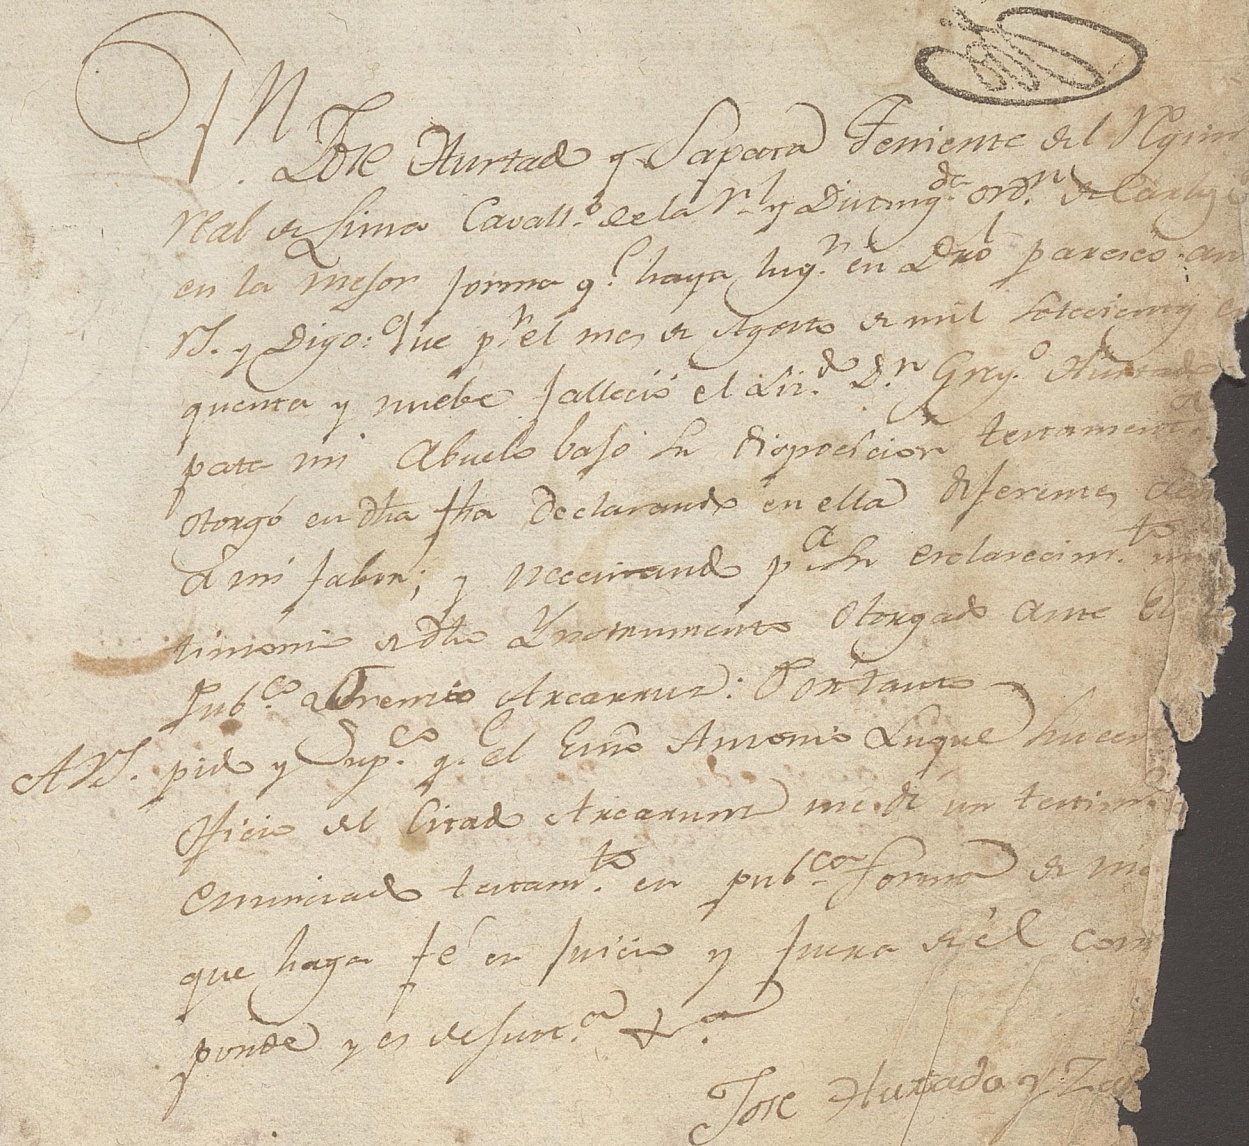 Dn.
José Hurtado y Sapata Teniente del Regim
Real de Lima Cavallo. de la Rl. y Disting.da Ordn. de Carlos
en la mejor forma q.e haya lug.r en Dro paresco an
VS. y Digo: Que p.r el mes de Agosto de mil setecientos
quenta y nuebe falleció el Liz.do D.n Greg.o Hurtado
pata mi Abuelo bajo su disposicion testament
otorgó en dha fha Declarando en ella diferentes
a mi fabor; y necesitando p.a su esclarecim.to un
timonio de dho Ynstrumento otorgado ante el
Pub.co Orencio Ascarrunz: Por tanto
A VS. pido y Sup.co q.e el Esno Antonio Luque sucesor
oficio del citado Ascarrunz me dé un testim
enunciado testam.to en pub.ca forma de m
que haga fé en juicio y fuera de él con
ponde y es de just.a &.a
José Hurtado y Zap